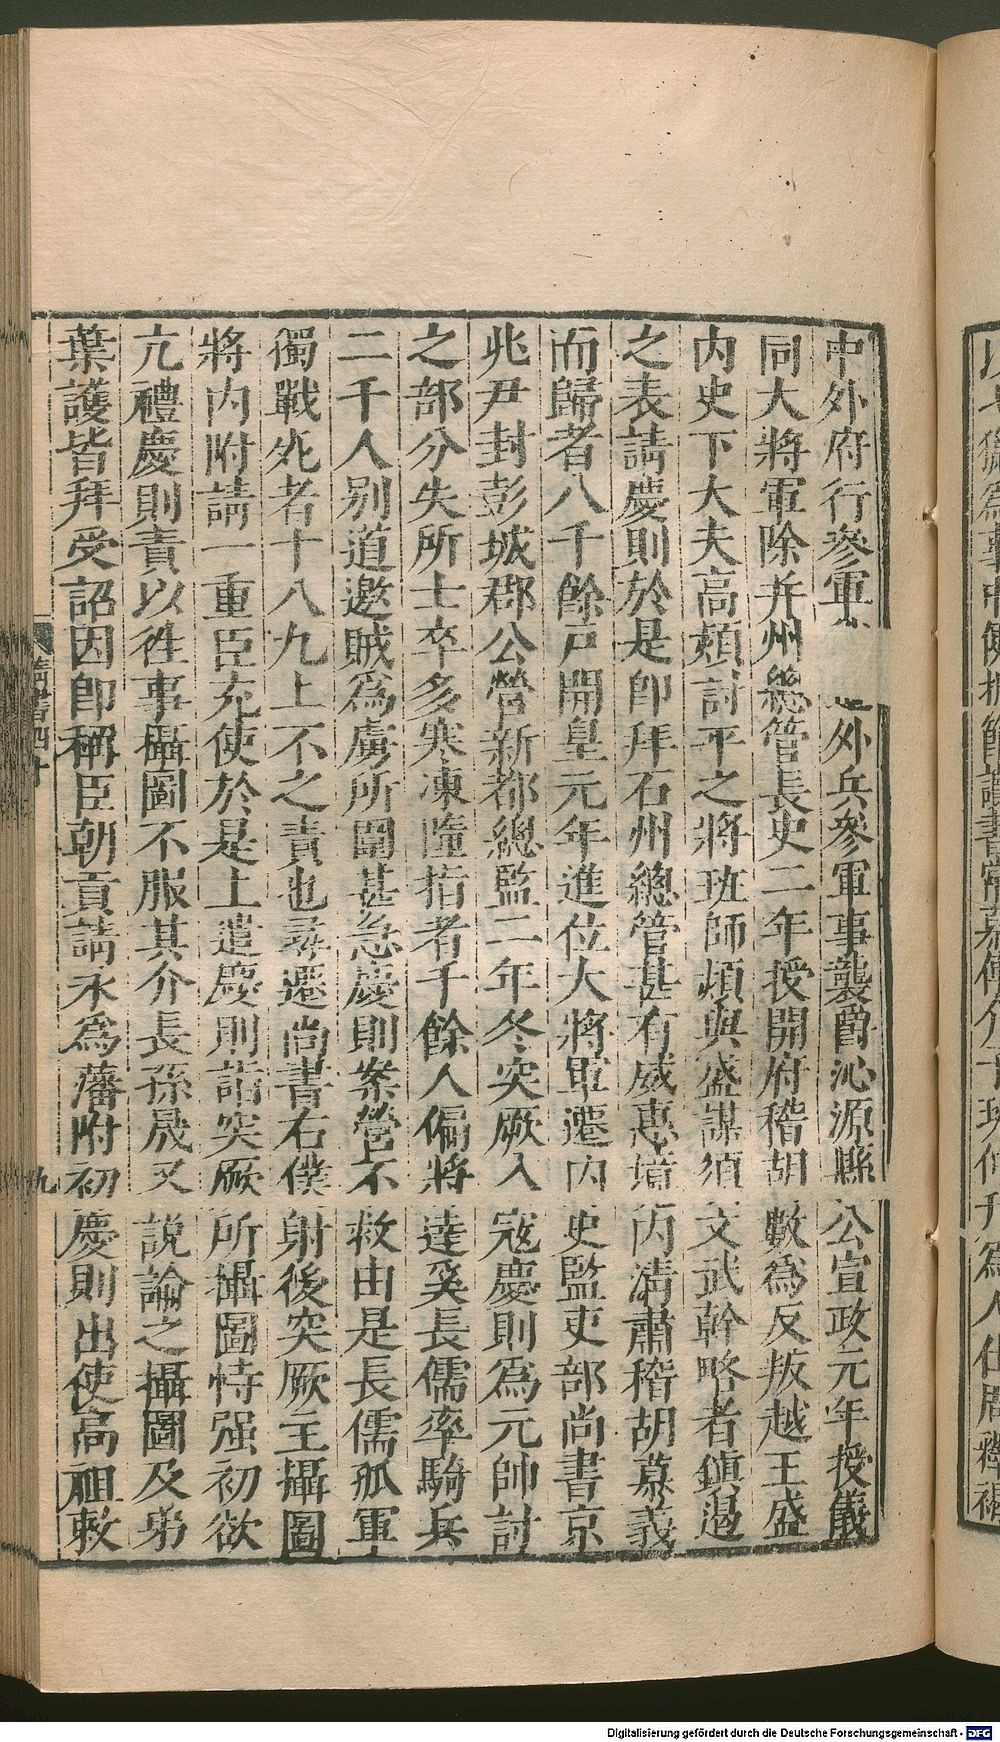 中外府行參軍外兵參軍事襲爵沁源縣公宣政元年授儀
同大將軍除并州總管長史二年授開府稽胡數爲反叛越王盛
内史下大夫高熲討平之將班師熲與盛謀須文武幹略者鎮遏
之表請慶則於是卽拜石州總管甚有威惠境内清肅稽胡慕義
而歸者八千餘戸開皇元年進位大將軍遷内史監吏部尚書京
兆尹封彭城郡公營新都總監二年冬突厥入寇慶則爲元帥討
之部分失所士卒多寒凍墮指者千餘人偏將達奚長儒率騎兵
二千人别道邀賊爲虜所圍甚急慶則案營不救由是長儒孤軍
獨戰死者十八九上不之責也尋遷尚書右僕射後突厥主攝圖
將内附請一重臣充使於是上遣慶則詣突厥所攝圖恃强初欲
亢禮慶則責以往事攝圖不服其介長孫晟又說諭之攝圖及弟
葉護皆拜受詔因卽稱臣朝貢請永爲藩附初慶則出使高祖敕
隋書四十
九
Digitalisierung gefördert durch die Deutsche Forschungsgemeinschaft - DFG